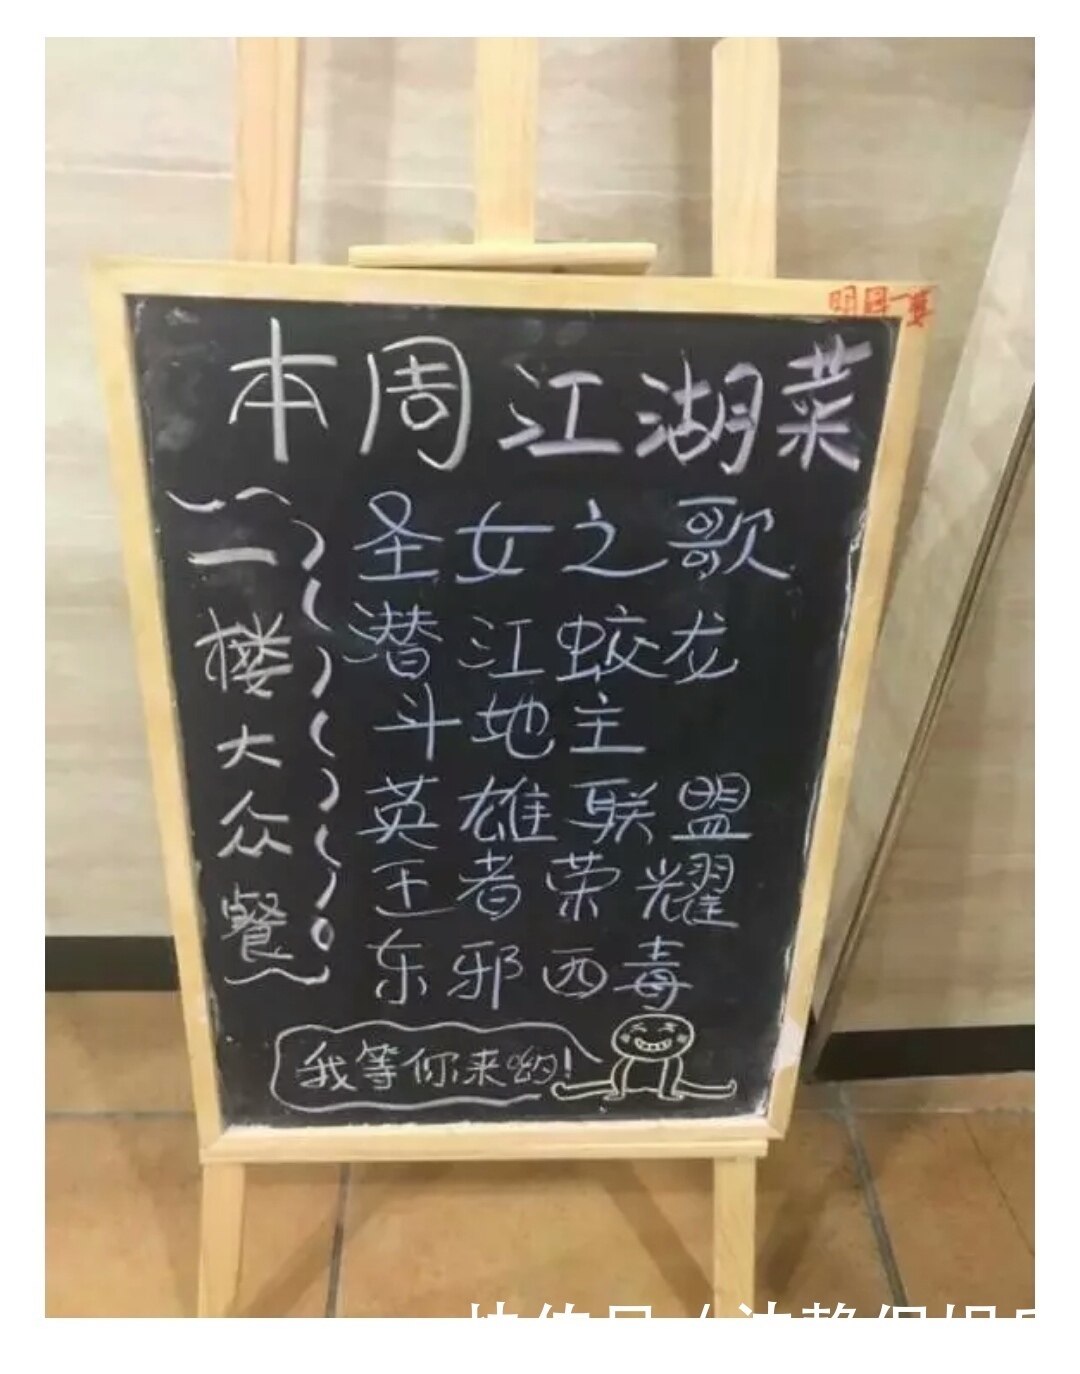 本周江湖菜
一楼大众餐
圣女之歌
潜江蛟龙
斗地主
英雄联盟
王者荣耀
东邪西毒
我等你来哟!